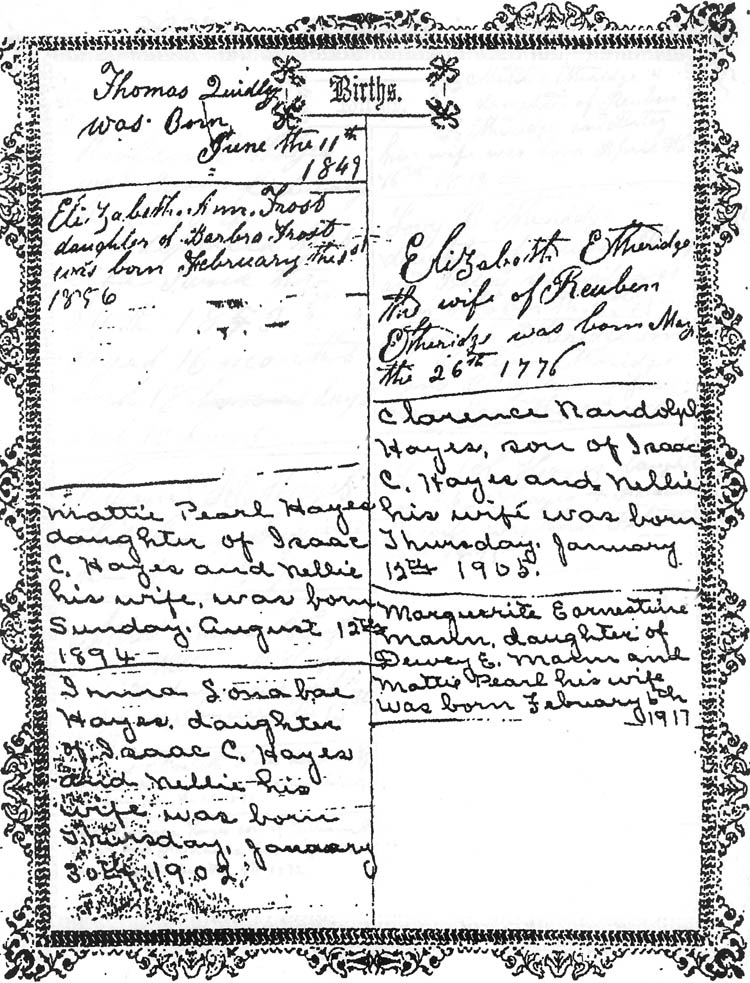 Births.
Thomas Quidly
was Born
June the 11th
1849
Elizabeth Ann Frost
daughter of Barbra Frost
was born February the 1st
1856
Mattie Pearl Hayes
daughter of Isaac
C. Hayes and Nellie
his wife, was born
Sunday. August 12th
1894
Inna Sona bae
Hayes, daughter
of Isaac C. Hayes
and Nellie his
wife was born
Thursday, January
30th 1902.
Elizabeth Etheridge
the wife of Reuben
Etheridge was born May
the 26th 1776
Clarence Randolph
Hayes, son of Isaac
C. Hayes and Nellie
his wife was born
Thursday. January
12th 1905.
Marguerite Earnestine
Mann, daughter of
Dewey E. Mann and
Mattie Pearl his wife
was born February 6th
1917